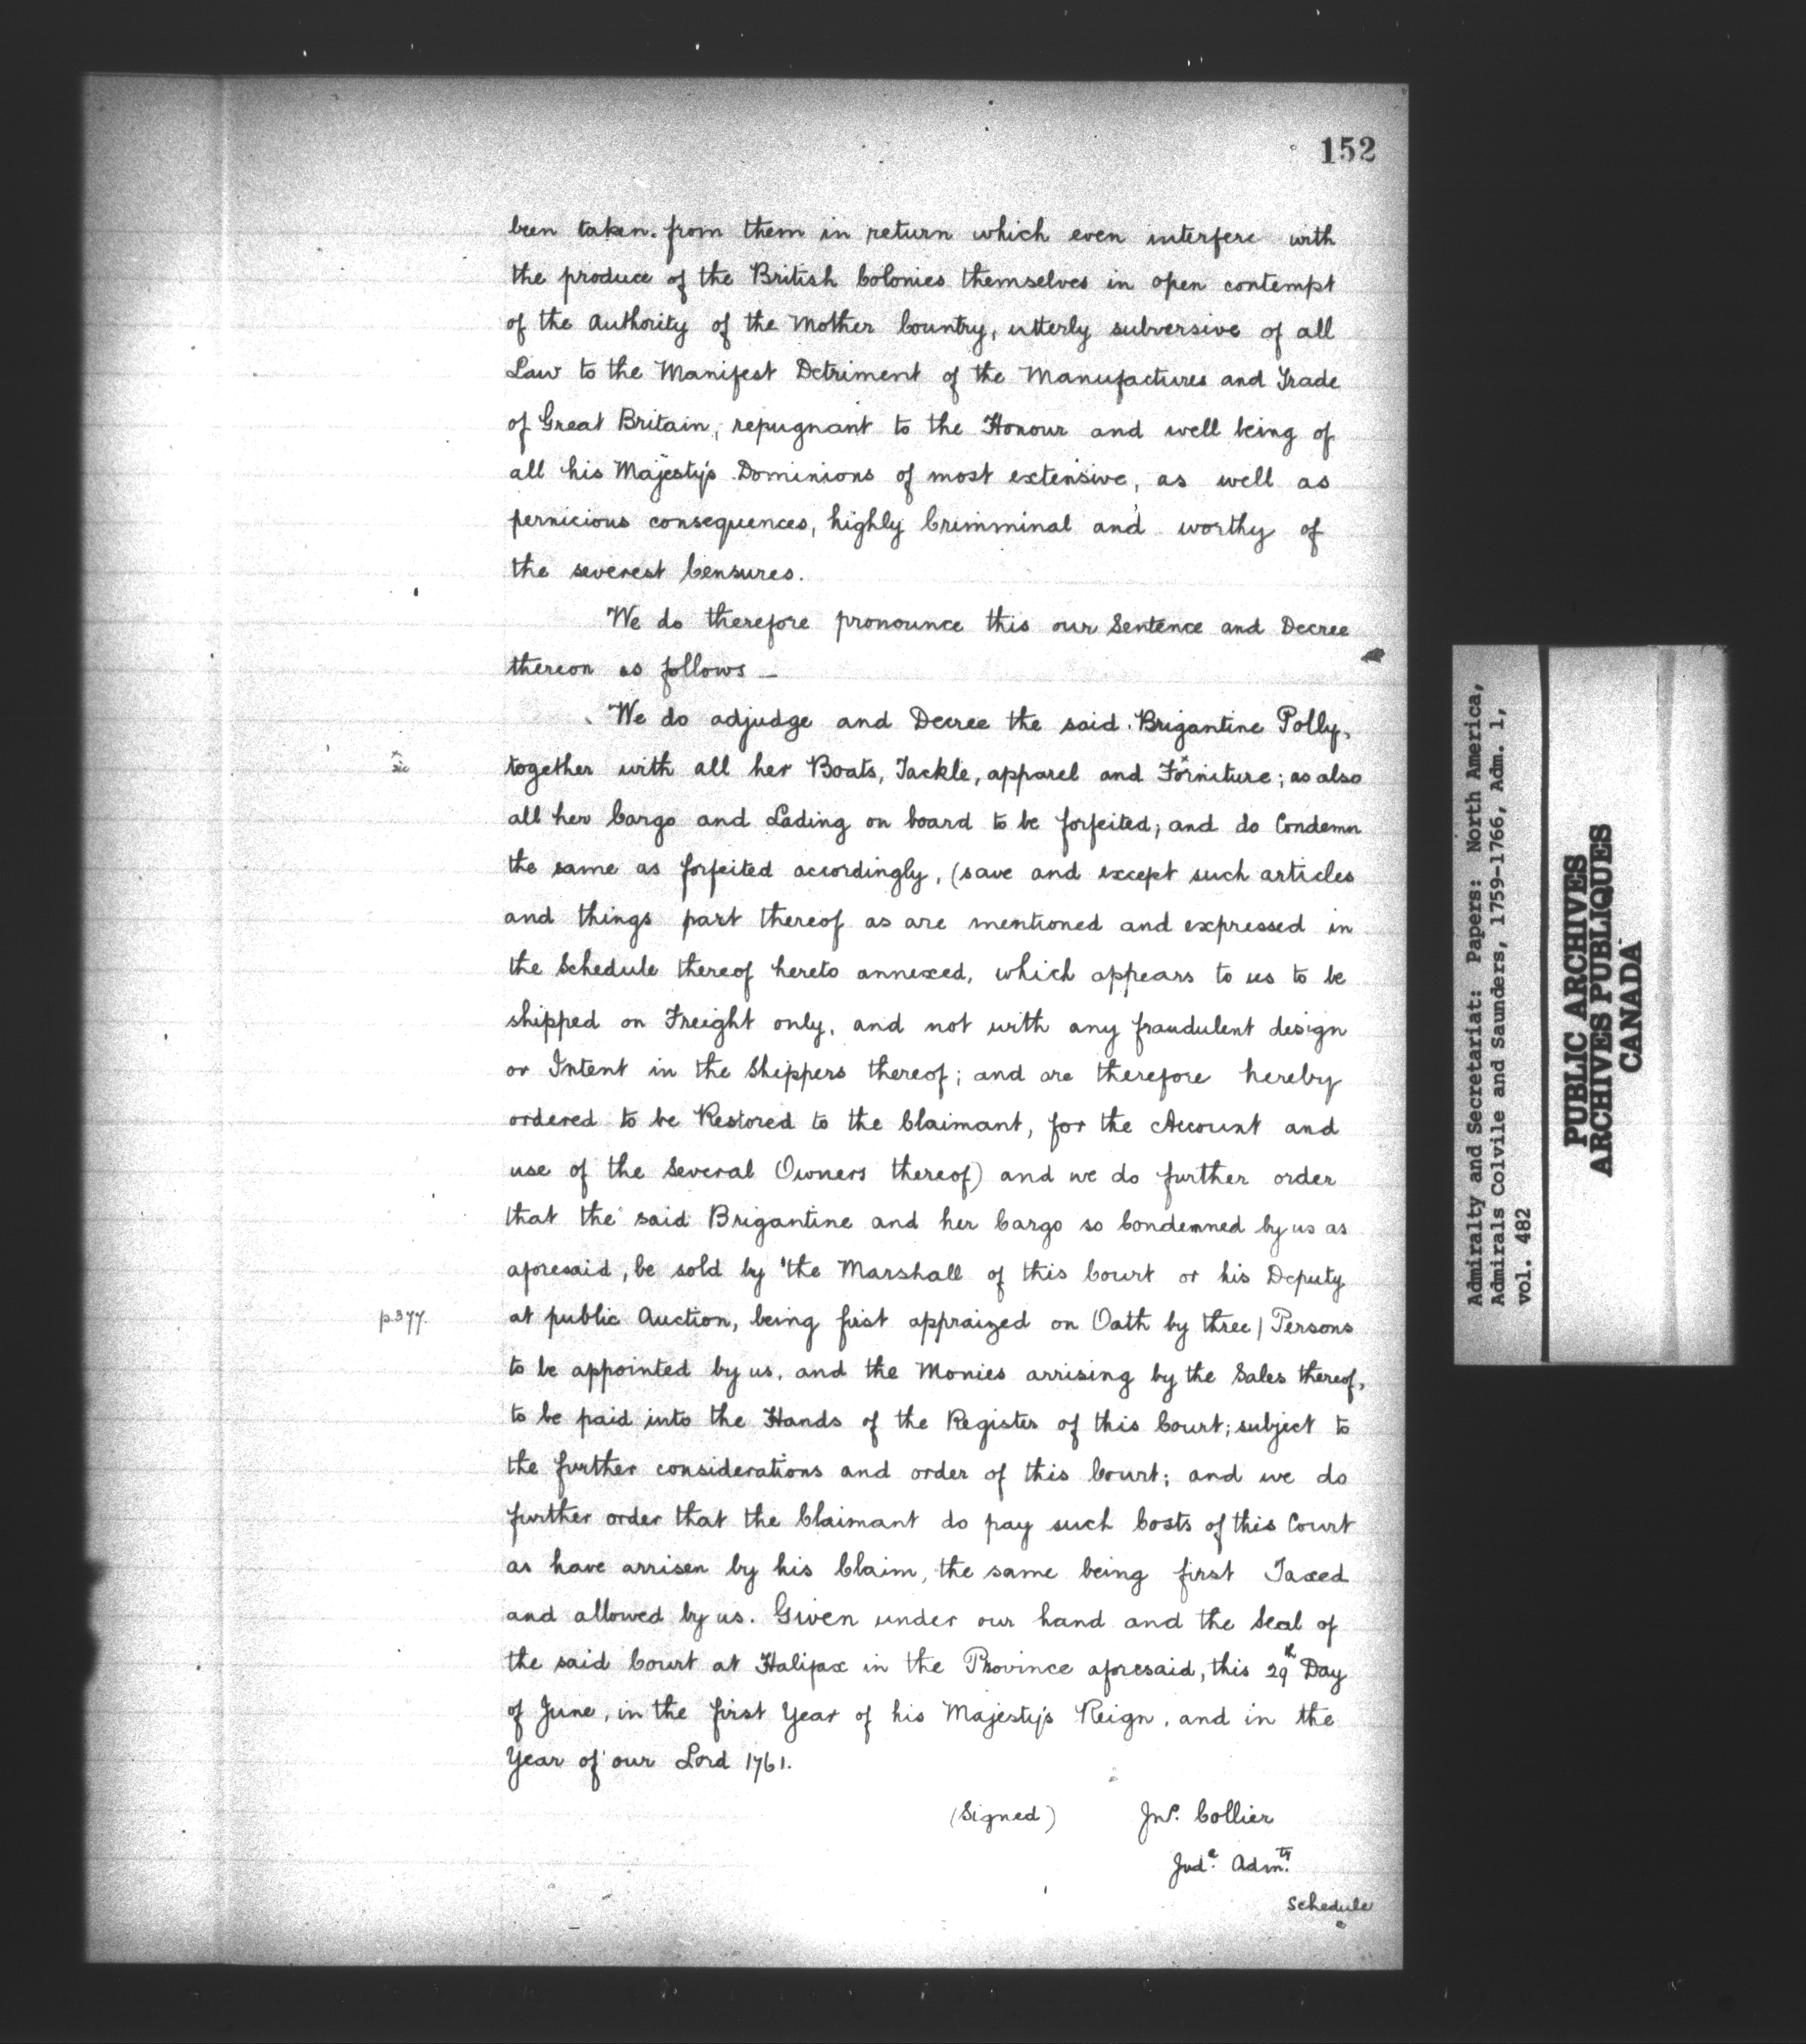 152
been taken from them in return which even interfere with
the produce of the British Colonies themselves in open contempt
of the Authority of the Mother Country, utterly subversive of all
Law to the Manifest Detriment of the Manufactures and Trade
of Great Britain, repugnant to the Honour and well being of
all his Majesty's Dominions of most extensive, as well as
pernicious consequences, highly Crimminal and worthy of
the severest Censures.
We do therefore pronounce this our Sentence and Decree
thereon as follows —
We do adjudge and Decree the said Brigantine Polly,
x sic
together with all her Boats, Tackle, apparel and Forniture; as also
all her Cargo and Lading on board to be forfeited; and do Condemn
the same as forfeited accordingly, (save and except such articles
and things part thereof as are mentioned and expressed in
the Schedule thereof hereto annexed, which appears to us to be
shipped on Freight only, and not with any fraudulent design
or Intent in the Shippers thereof; and are therefore hereby
ordered to be Restored to the Claimant, for the Account and
use of the Several Owners thereof) and we do further order
that the said Brigantine and her Cargo so Condemned by us as
aforesaid, be sold by the Marshall of this Court or his Deputy
p377.
at public Auction, being first appraized on Oath by three / Persons
to be appointed by us, and the Monies arrising by the Sales thereof,
to be paid into the Hands of the Register of this Court; subject to
the further considerations and order of this Court; and we do
further order that the Claimant do pay such Costs of this Court
as have arrisen by his Claim, the same being first Taxed
and allowed by us. Given under our hand and the Seal of
the said Court at Halifax in the Province aforesaid, this 29th Day
of June, in the first Year of his Majesty's Reign, and in the
Year of our Lord 1761.
(Signed) Jno. Collier
Jude. Admty.
Schedule
Admiralty and Secretariat: Papers: North America,
Admirals Colvile and Saunders, 1759-1766, Adm. 1,
vol. 482
PUBLIC ARCHIVES
ARCHIVES PUBLIQUES
CANADA